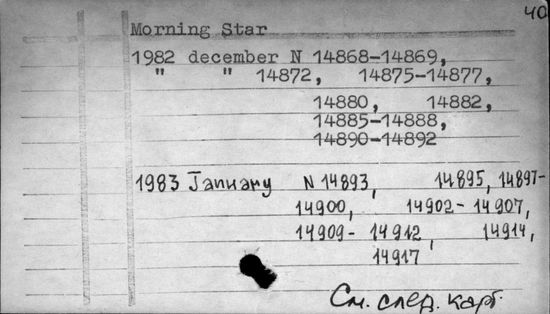 40
Morning Star
1982 december N 14868-14869,
" " 14872, 14875-14877,
14880, 14882,
14885-14888,
14890-14892
1983 January N 14893, 14895, 14897-
14900, 14902-14907,
14909-14912, 14914,
14917
См. след. карт.